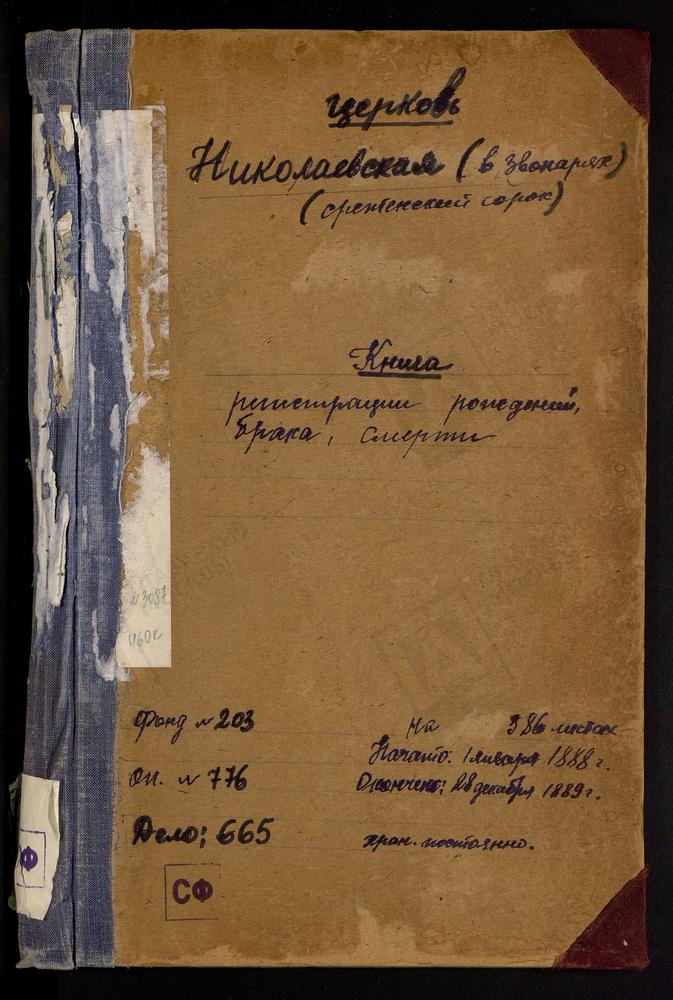 церковь
Николаевская (в Звонарях)
(сретенский сорок)
Книга
регистрации рождений,
брака, смерти
N 3087
460к
фонд N 203
оп. N 776
Дело: 665
СФ
на 386 листах
Начато: 1 января 1888 г.
Окончено: 28 декабря 1889 г.
хран. постоянно.
Ф